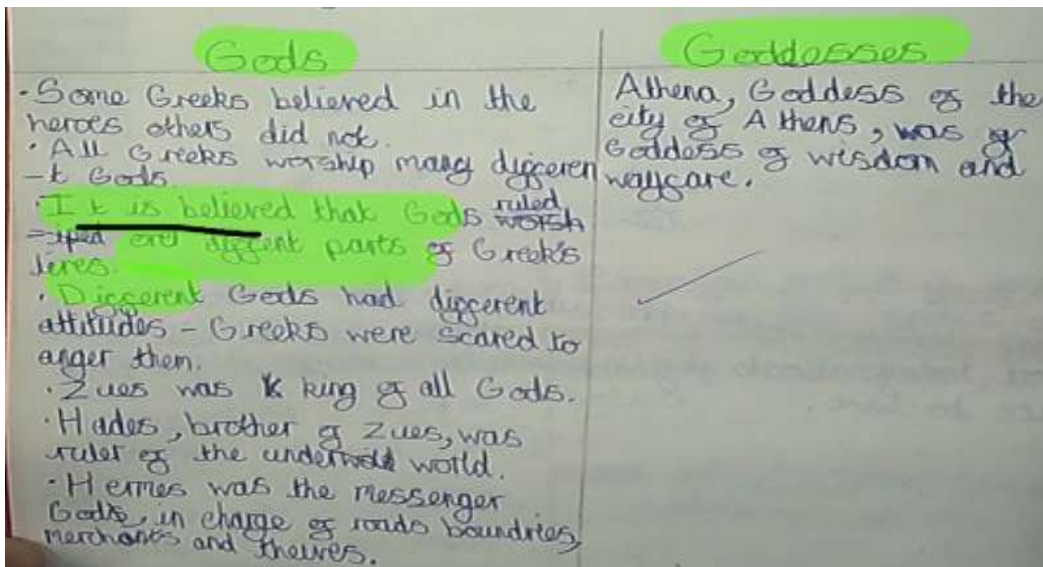 Gods
· Some Greeks believed in the
heroes others did not.
· All Greeks worship many differen
-t Gods.
· It is believed that Gods ruled worsh
-iped over different parts of Greek's
lives.
· Different Gods had different
attitudes - Greeks were scared to
anger them.
· Zues was king of all Gods.
· Hades, brother of Zues, was
ruler of the under world.
· Hermes was the messenger
Gods, in charge of roads boundries,
merchants and theives.
Goddesses
Athena, Goddess of the
city of Athens, was
Goddess of wisdom and
wayfare.